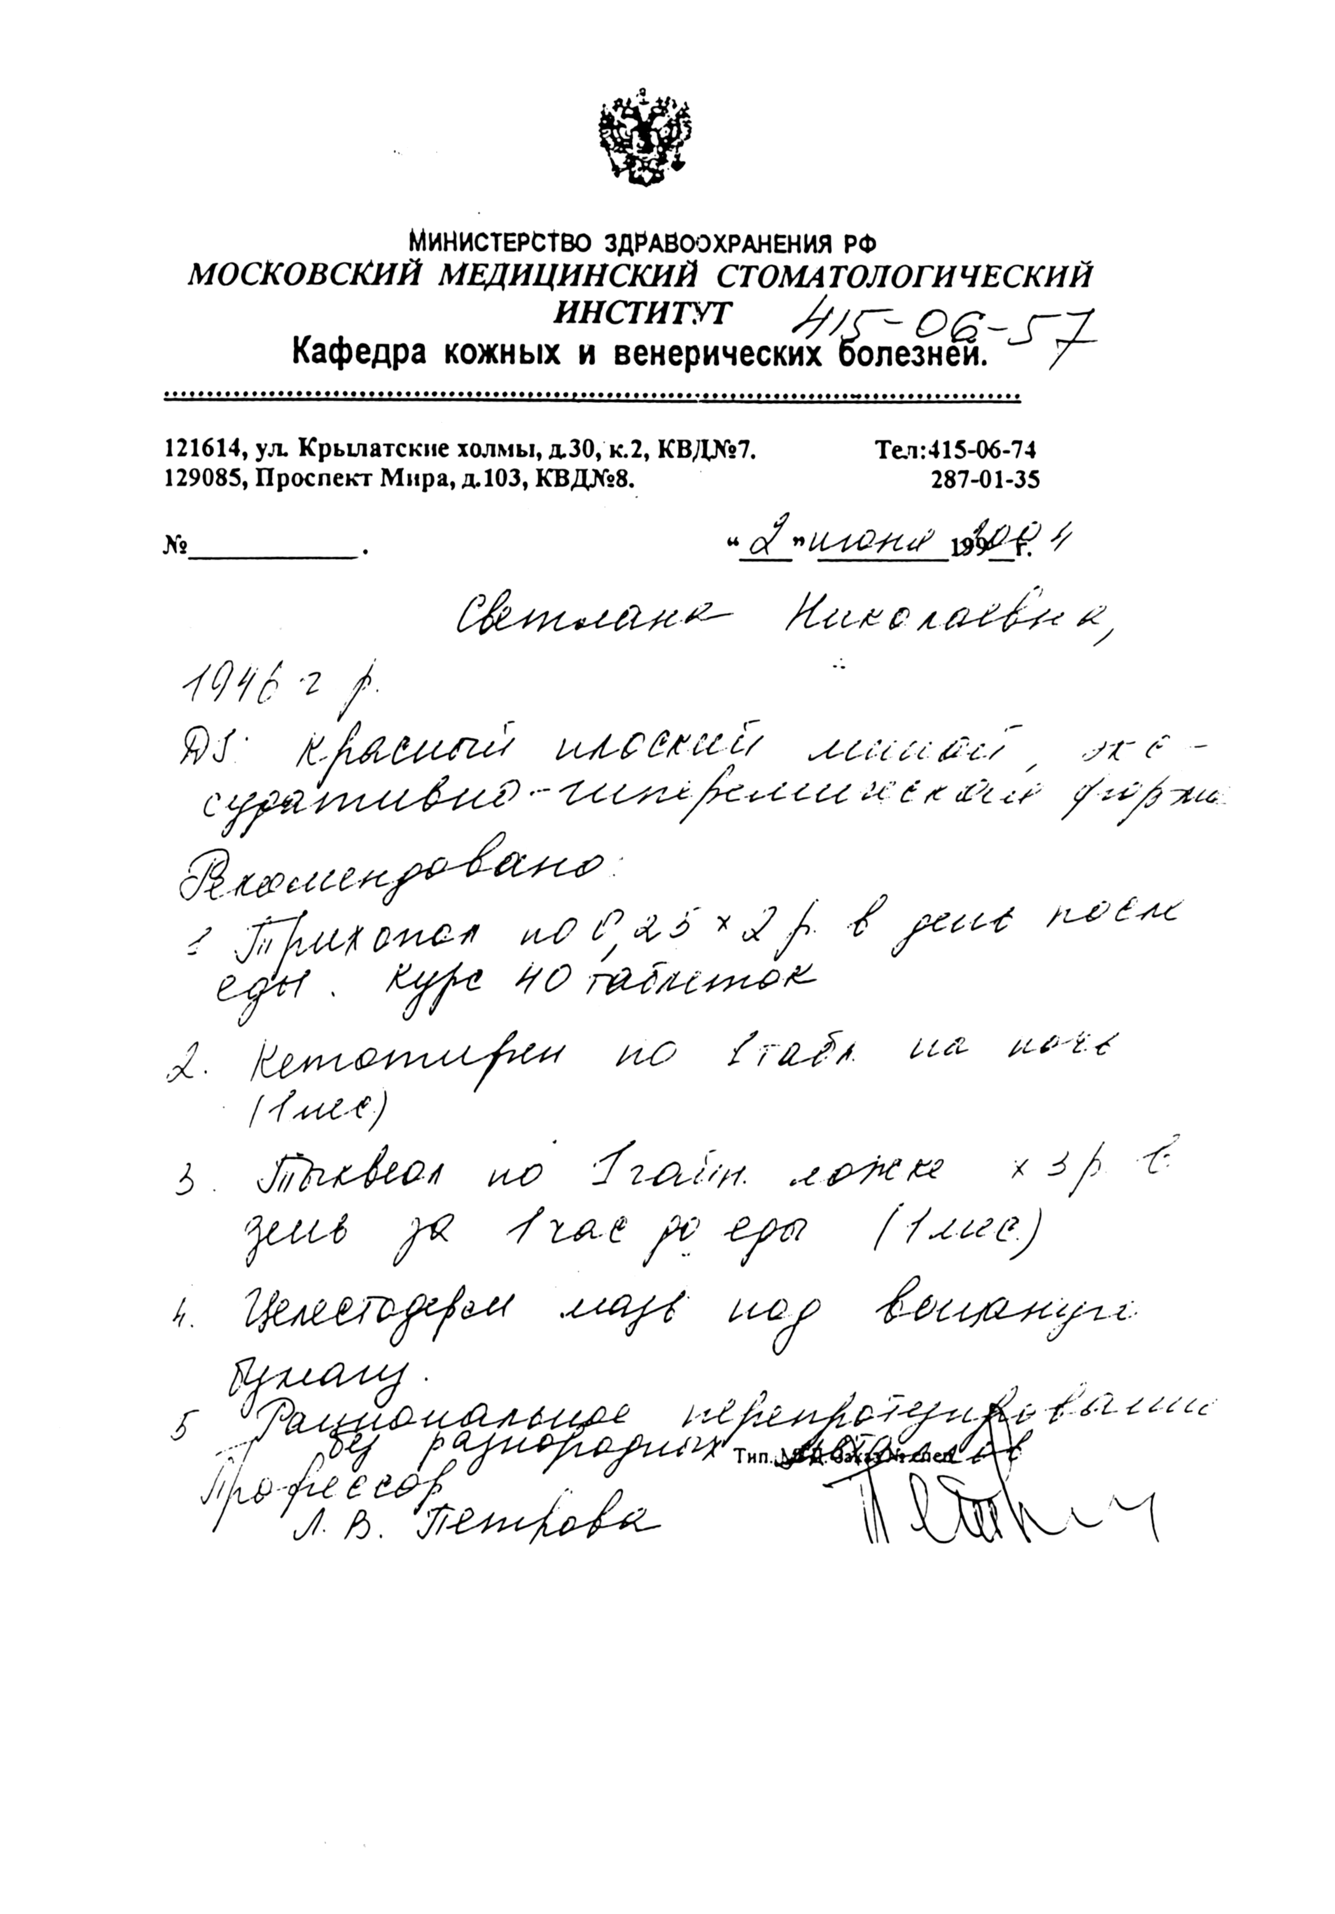 МИНИСТЕРСТВО ЗДРАВООХРАНЕНИЯ РФ
МОСКОВСКИЙ МЕДИЦИНСКИЙ СТОМАТОЛОГИЧЕСКИЙ
ИНСТИТУТ 415-06-57
Кафедра кожных и венерических болезней.
121614, ул. Крылатские холмы, д.30, к.2, КВД№7. Тел:415-06-74
129085, Проспект Мира, д.103, КВД№8. 287-01-35
№ . “ 2 ” июня 2004 г.
Светлана Николаевна,
1946 г р.
DS: Красный плоский лишай, экс-
судативно-гиперемическая форма
Рекомендовано:
1 Трихопол по 0,25 х 2 р. в день после
еды. Курс 40 таблеток
2. Кетотифен по 1 табл на ночь
(1 мес)
3. Тыквеол по 1 чайн. ложке х 3 р. в
день за 1 час до еды (1 мес.)
4. Целестодерм мазь под вощаную
бумагу.
5 Рациональное перепротезирование
без разнородных металлов
Профессор
Л. В. Петрова